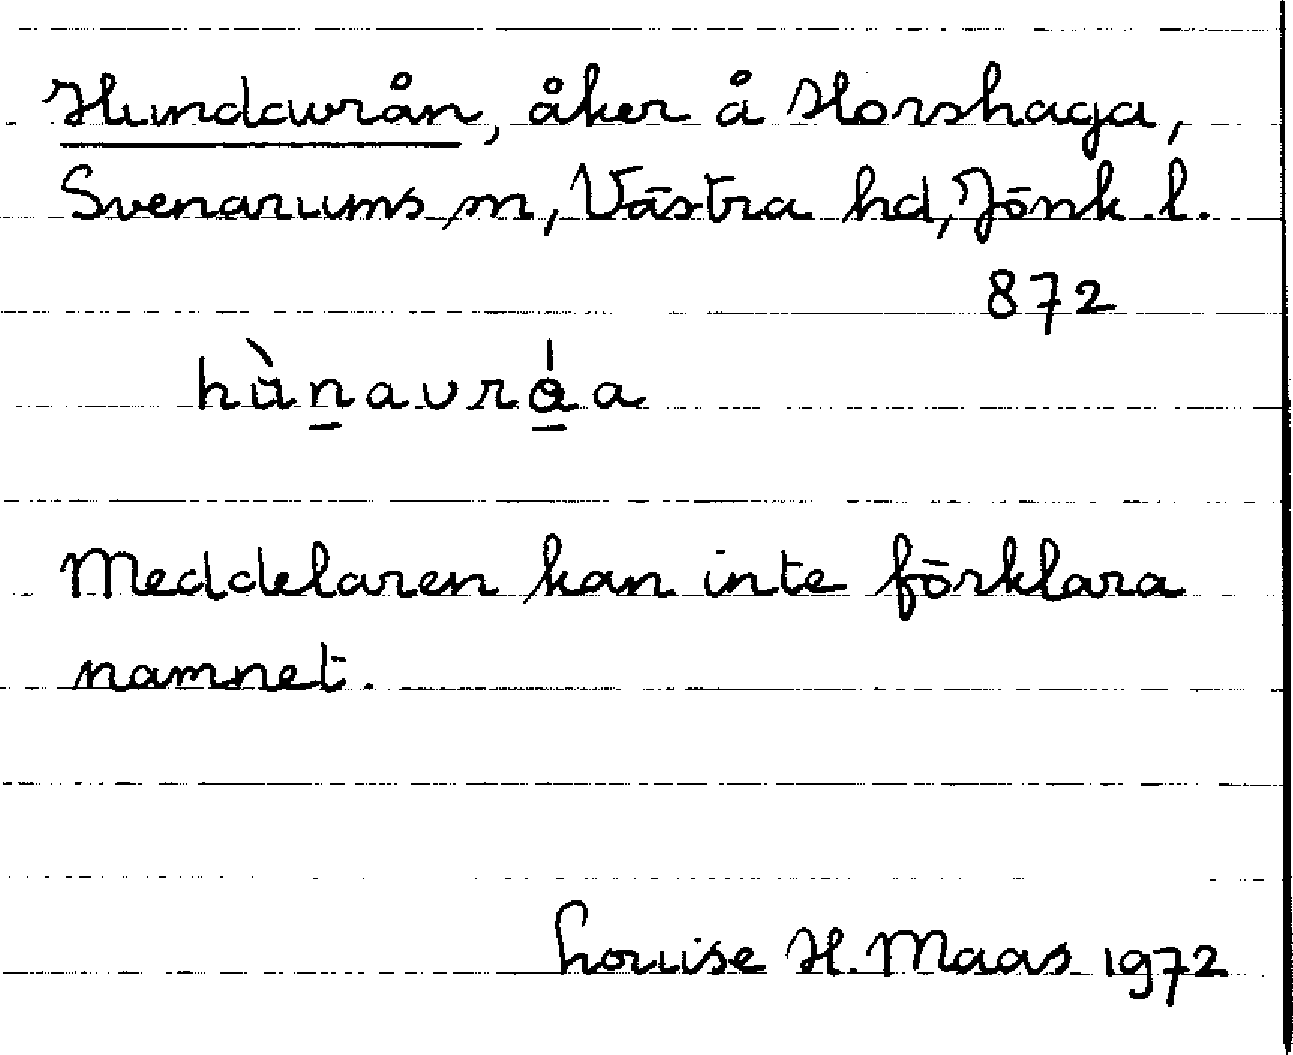 Hundavrån, åker å Horshaga,
Svenarums sn, Västra hd, Jönk. l.
872
hùn̲avrǻ̲a
Meddelaren kan inte förklara
namnet.
Louise H. Maas 1972